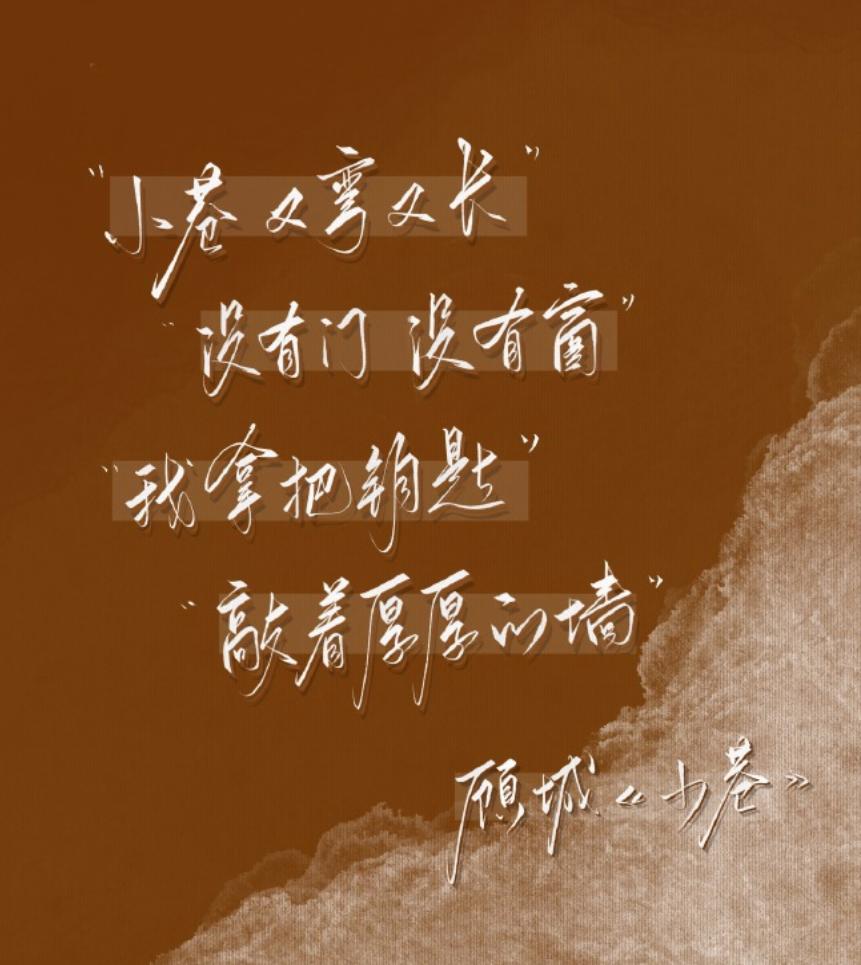 "小巷又弯又长"
"没有门 没有窗"
"我拿把钥匙"
"敲着厚厚的墙"
顾城《小巷》